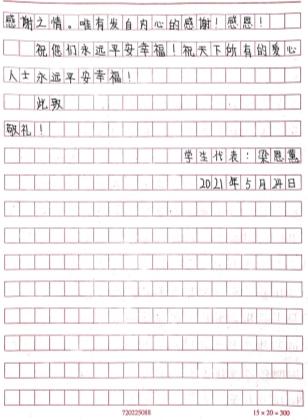 感谢之情。唯有发自内心的感谢！感恩！
祝他们永远平安幸福！祝天下所有的爱心
人士永远平安幸福！
此致
敬礼！
学生代表：梁恩蕙
2021年5月24日
720225088
15×20=300